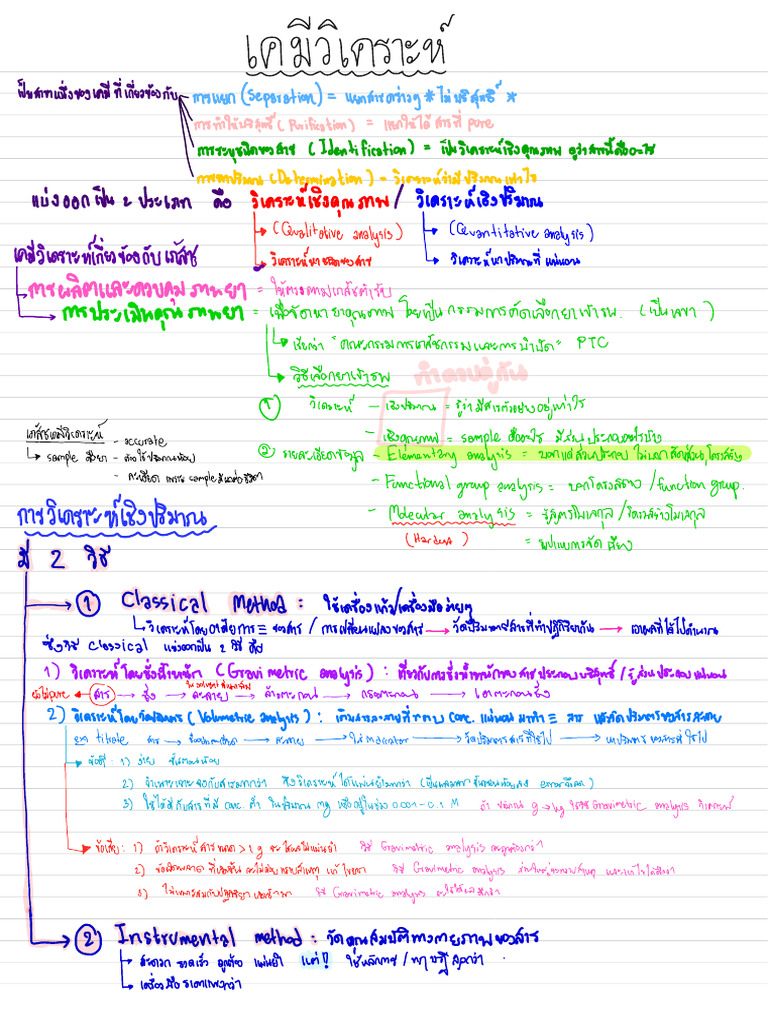 เคมีวิเคราะห์
เป็นสาขาหนึ่งของเคมี ที่เกี่ยวข้องกับ
การแยก (Separation) = แยกสารต่างๆ * ไม่บริสุทธิ์ *
การทำให้บริสุทธิ์ (Purification) = แยกให้ได้ สารที่ pure
การระบุชนิดของสาร (Identification) = เป็นวิเคราะห์เชิงคุณภาพ ดูว่าสารนี้คืออะไร
การหาปริมาณ (Determination) = วิเคราะห์ว่ามีปริมาณเท่าไร
แบ่งออกเป็น 2 ประเภท คือ วิเคราะห์เชิงคุณภาพ / วิเคราะห์เชิงปริมาณ
(Qualitative analysis) (Quantitative analysis)
วิเคราะห์หาชนิดของสาร วิเคราะห์หาปริมาณที่แน่นอน
เคมีวิเคราะห์เกี่ยวข้องกับเภสัช
การผลิตและควบคุมภาพยา = ให้ตรงตามเภสัชตำรับ
การประเมินคุณภาพยา = เพื่อจัดหายาคุณภาพ โดยเป็นกรรมการคัดเลือกยาเข้ารพ. (เป็นเลขา)
เรียกว่า "คณะกรรมการเภสัชกรรมและการบำบัด" PTC
วิธีเลือกยาเข้ารพ ทำควบคู่กัน
① วิเคราะห์ - เชิงปริมาณ = รู้ว่ามีสารตัวอย่างอยู่เท่าไร
- เชิงคุณภาพ = sample คืออะไร มีส่วนประกอบอะไรบ้าง
เภสัชเคมีวิเคราะห์ - accurate
sample คือยา - ต้องใช้ปริมาณน้อย
- ละเอียด เพราะ sample มีผลต่อชีวิต
② รายละเอียดข้อมูล - Elementary analysis = บอกแค่ส่วนประกอบ ไม่บอกสัดส่วน, โครงสร้าง
- Functional group analysis = บอกโครงสร้าง / function group.
- Molecular analysis = รู้สูตรโมเลกุล / โครงสร้างโมเลกุล
(Hardest) = รูปแบบการจัดเรียง
การวิเคราะห์เชิงปริมาณ
มี 2 วิธี
① Classical method : ใช้เครื่องแก้ว/เครื่องมือง่ายๆ
วิเคราะห์โดยอาศัยการ ≡ ของสาร / การเปลี่ยนแปลงของสาร → วัดปริมาณสารที่ทำปฏิกิริยากัน → เอาผลที่ได้ไปคำนวณ
ซึ่งวิธี Classical แบ่งออกเป็น 2 วิธี คือ
1) วิเคราะห์โดยชั่งน้ำหนัก (Gravimetric analysis) : เกี่ยวกับการชั่งน้ำหนักของสารประกอบบริสุทธิ์ / รู้ส่วนประกอบแน่นอน
สาร → ชั่ง → ละลาย → ล้างตะกอน → กรองตะกอน → เอาตะกอนชั่ง
2) วิเคราะห์โดยวัดปริมาตร (Volumetric analysis) : เติมสารละลายที่ทราบ conc. แน่นอน มาทำ ≡ สาร แล้ววัดปริมาตรของสารละลาย
titrate สาร → → ละลาย → ใส่ indicator → วัดปริมาตรสารที่ใช้ไป → หาปริมาณของสารที่ใช้ไป
ข้อดี : 1) ง่าย ขั้นตอนน้อย
2)
3) ใช้ได้ดีกับสารที่มี conc. ต่ำ ในปริมาณ mg หรืออยู่ในช่วง 0.001 - 0.1 M ถ้า g → kg ใช้วิธี Gravimetric analysis
ข้อเสีย : 1) ถ้าวิเคราะห์สารขนาด > 1 g จะได้ผลไม่แม่นยำ วิธี Gravimetric analysis จะถูกต้องกว่า
2) วิธี Gravimetric analysis
3) วิธี Gravimetric analysis
② Instrumental method : วัดคุณสมบัติทางกายภาพของสาร
สะดวก รวดเร็ว ถูกต้อง แม่นยำ แต่!! ใช้หลักการ / ทฤษฎี
เครื่องมือราคาแพงกว่า